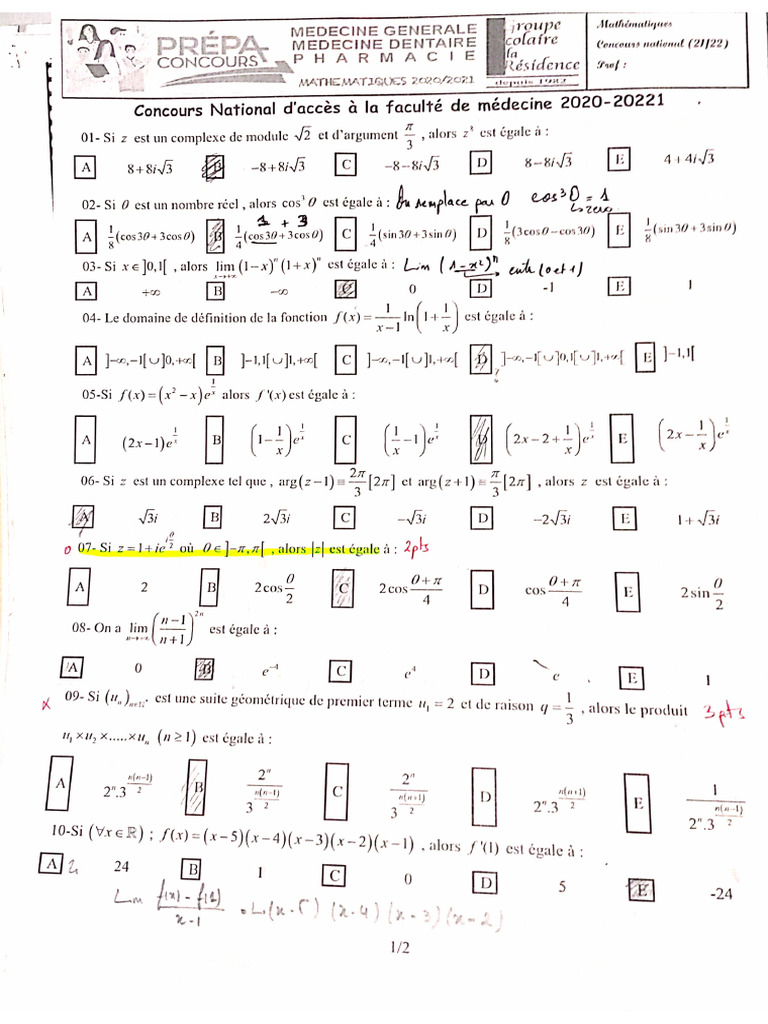 PRÉPA CONCOURS
MEDECINE GENERALE
MEDECINE DENTAIRE
PHARMACIE
MATHEMATIQUES 2020/2021
Groupe
Scolaire
la
Résidence
depuis 1982
Mathématiques
Concours national (21/22)
Prof :
Concours National d'accès à la faculté de médecine 2020-20221
01- Si z est un complexe de module √2 et d'argument π/3 , alors z⁸ est égale à :
A 8+8i√3 B −8+8i√3 C −8−8i√3 D 8−8i√3 E 4+4i√3
02- Si θ est un nombre réel , alors cos³θ est égale à : On remplace par 0 cos³0 = 1
↳ zero
1 + 3
A 1/8(cos3θ+3cosθ) B 1/4(cos3θ+3cosθ) C 1/4(sin3θ+3sinθ) D 1/8(3cosθ−cos3θ) E 1/8(sin3θ+3sinθ)
03- Si x∈]0,1[ , alors lim x→+∞ (1−x)ⁿ(1+x)ⁿ est égale à : Lim (1−x²)ⁿ entre (0 et 1)
A +∞ B −∞ C 0 D -1 E 1
04- Le domaine de définition de la fonction f(x) = 1/(x−1) ln(1+1/x) est égale à :
A ]−∞,−1[∪]0,+∞[ B ]−1,1[∪]1,+∞[ C ]−∞,−1[∪]1,+∞[ D ]−∞,−1[∪]0,1[∪]1,+∞[ E ]−1,1[
05-Si f(x) = (x²−x)e^(1/x) alors f'(x) est égale à :
A (2x−1)e^(1/x) B (1−1/x)e^(1/x) C (1/x−1)e^(1/x) D (2x−2+1/x)e^(1/x) E (2x−1/x)e^(1/x)
06- Si z est un complexe tel que , arg(z−1) ≡ 2π/3 [2π] et arg(z+1) ≡ π/3 [2π] , alors z est égale à :
A √3i B 2√3i C −√3i D −2√3i E 1+√3i
o 07- Si z = 1+ie^(iθ/2) où θ∈]−π,π[ , alors |z| est égale à : 2pts
A 2 B 2cos θ/2 C 2cos (θ+π)/4 D cos (θ+π)/4 E 2sin θ/2
08- On a lim n→+∞ ((n−1)/(n+1))^(2n) est égale à :
A 0 B e⁻⁴ C e⁴ D e E 1
x 09- Si (uₙ)n∈ℕ* est une suite géométrique de premier terme u₁ = 2 et de raison q = 1/3 , alors le produit 3pts
u₁×u₂×.....×uₙ (n≥1) est égale à :
A 2ⁿ.3^(n(n−1)/2) B 2ⁿ/3^(n(n−1)/2) C 2ⁿ/3^(n(n+1)/2) D 2ⁿ.3^(n(n+1)/2) E 1/(2ⁿ.3^(n(n−1)/2))
10-Si (∀x∈ℝ) ; f(x) = (x−5)(x−4)(x−3)(x−2)(x−1) , alors f'(1) est égale à :
A 24 B 1 C 0 D 5 E -24
Lim (f(x) − f(1))/(x−1) (x−5)(x−4)(x−3)(x−2)
1/2